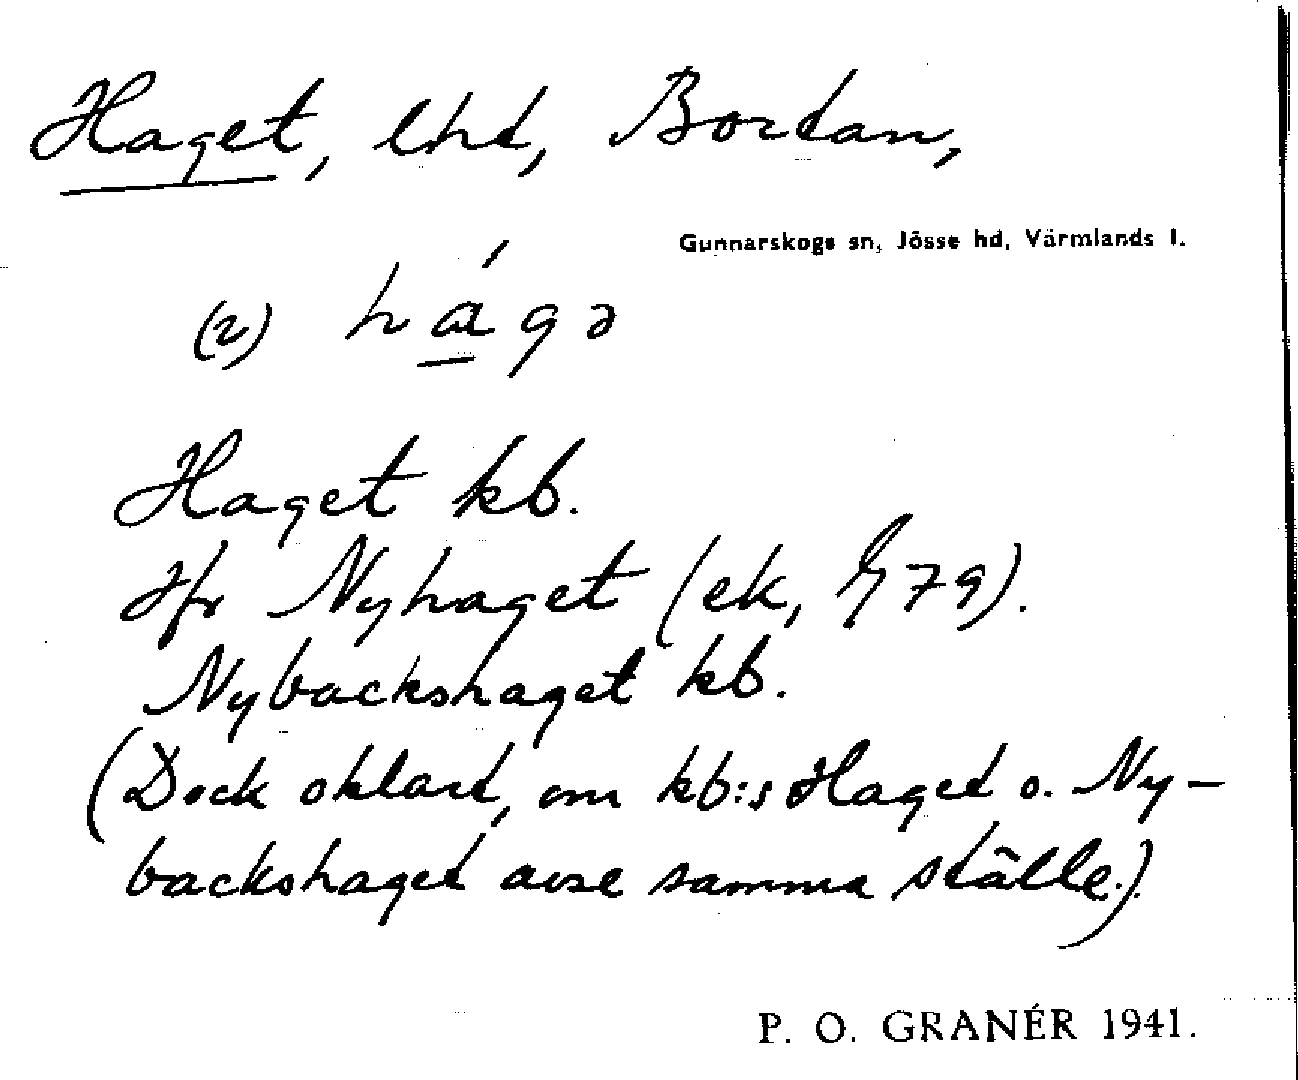 Haget, lhd, Bortan,
Gunnarskogs sn, Jösse hd, Värmlands l.
(2) há̱gə
Haget kb.
Jfr Nyhaget (ek, G 79).
Nybackshaget kb.
(Dock oklart, om kb:s Haget o. Ny-
backshaget avse samma ställe.)
P. O. GRANÉR 1941.